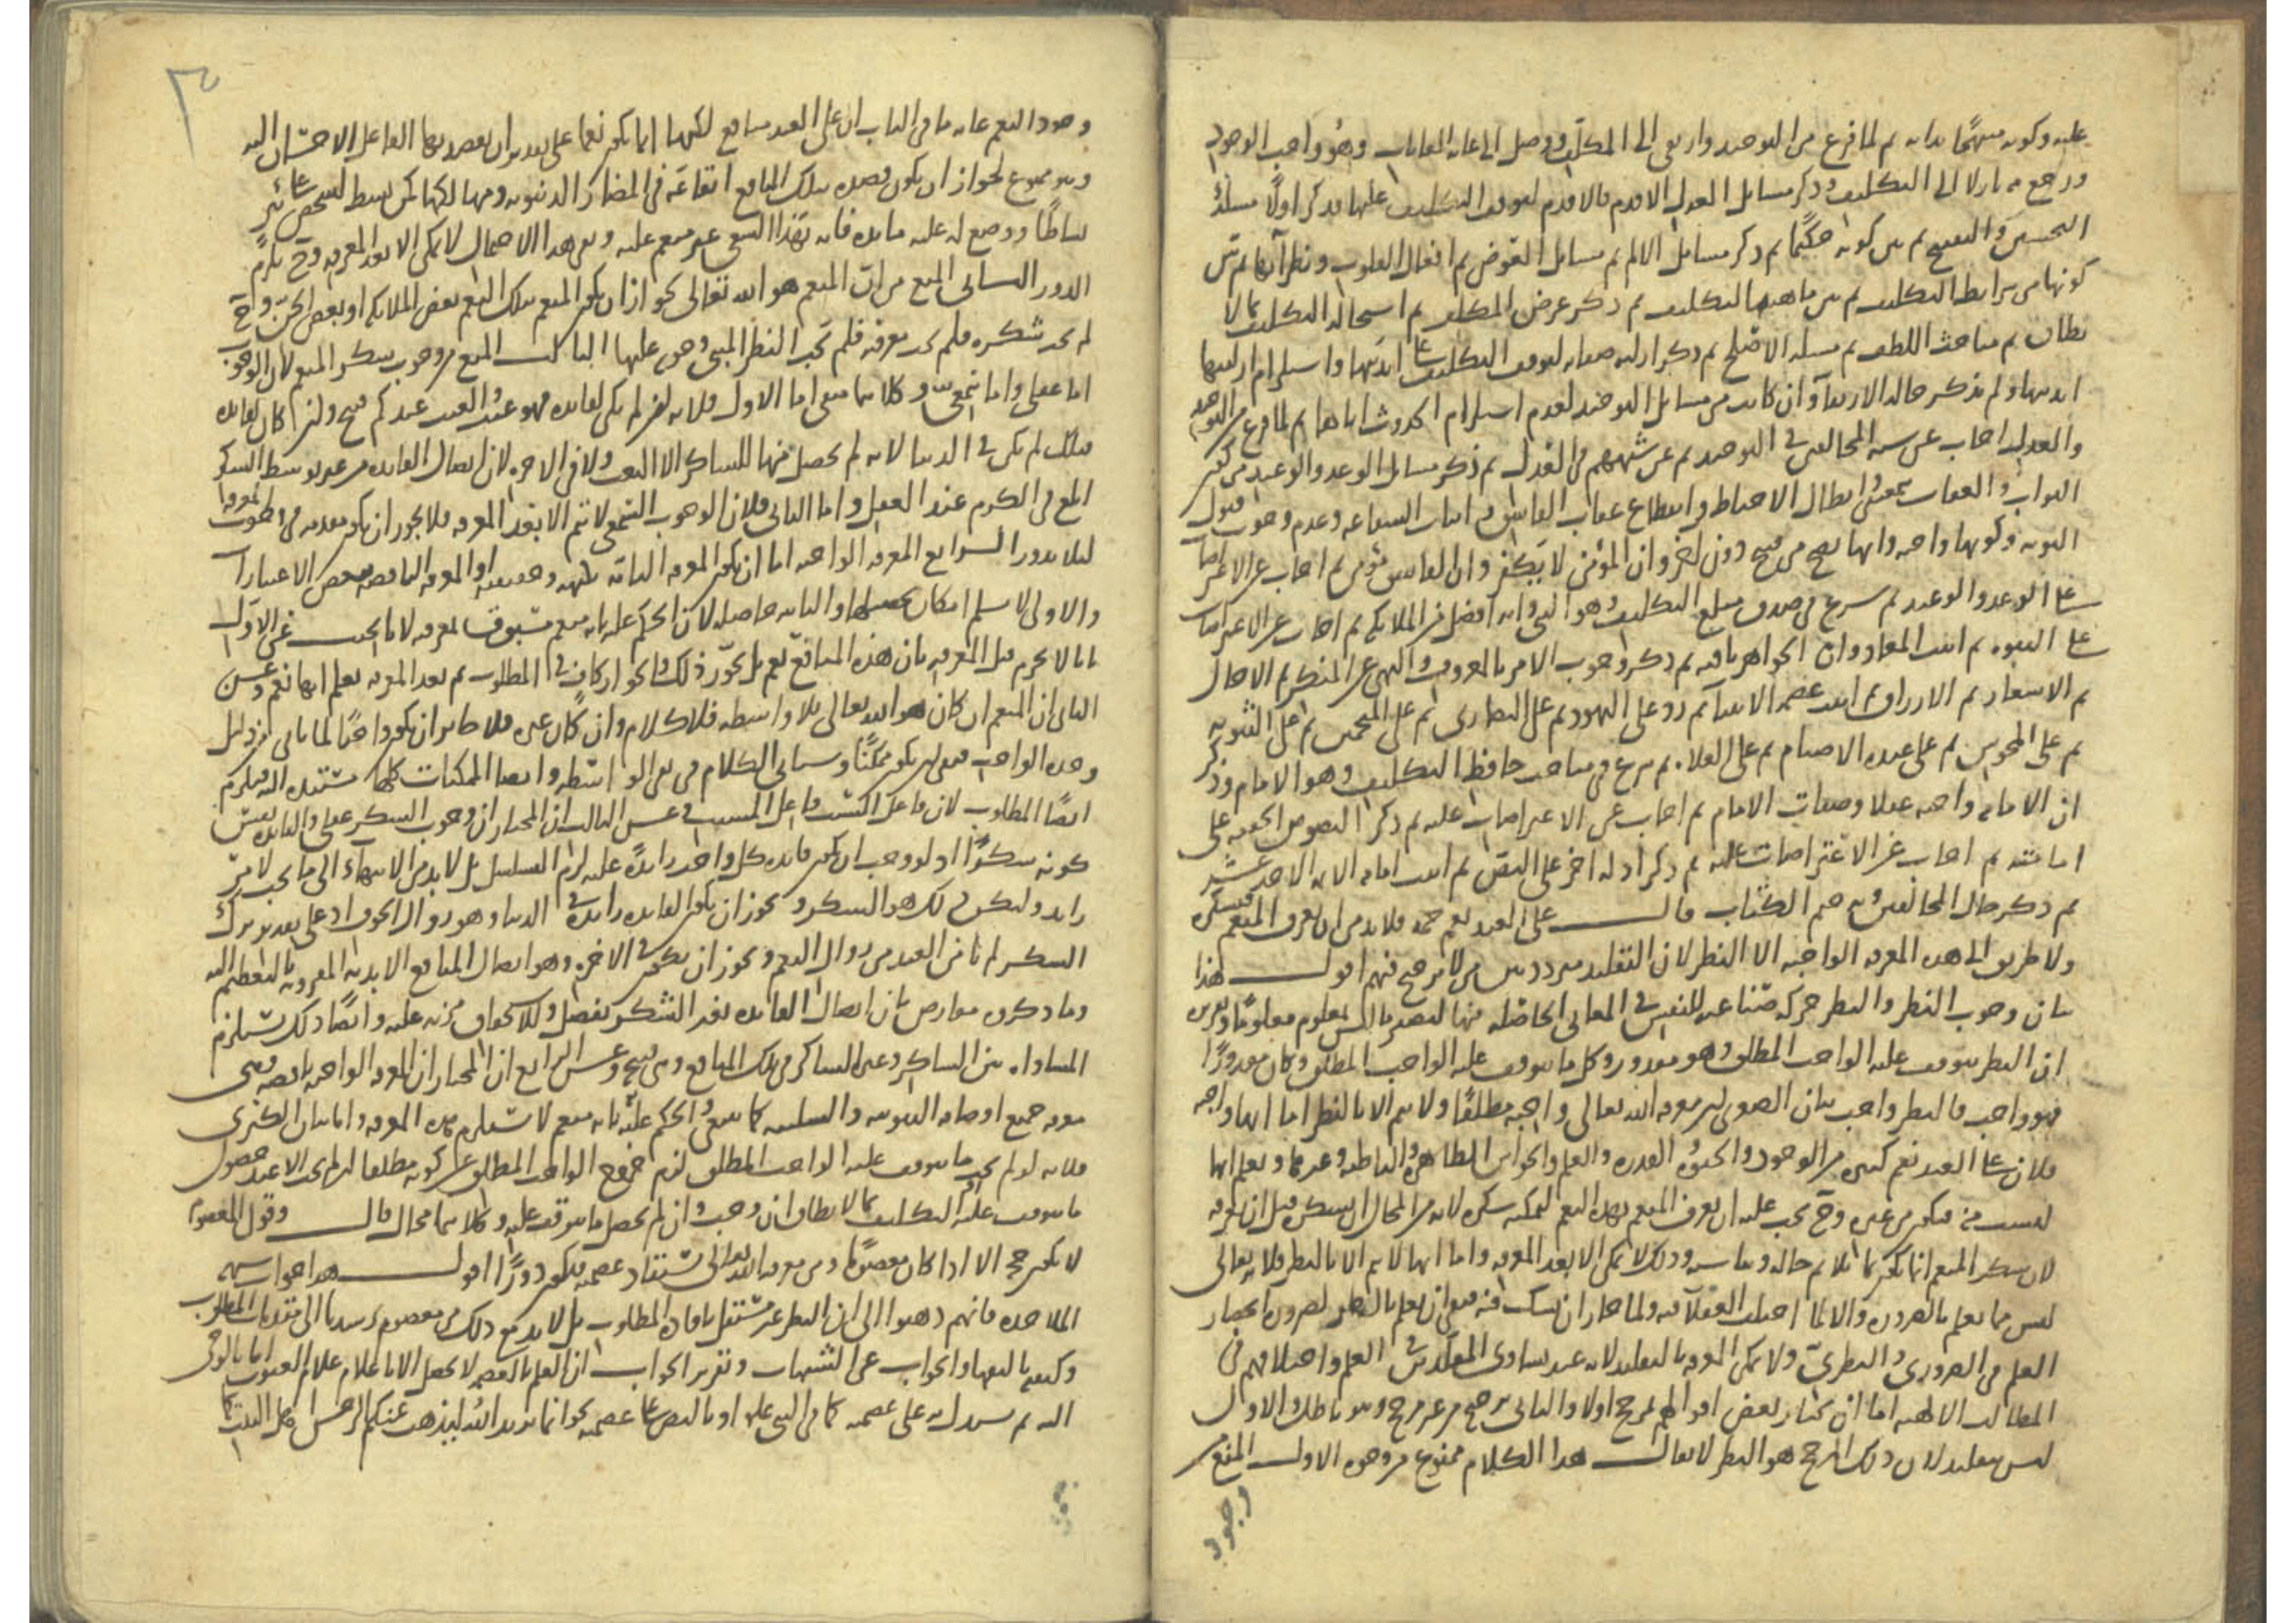 عليه وكونه مبتهجًا بذاته ثم لما فرغ من التوحيد وارتقى الى المكلِّف ووصل الى غاية الغايات وهُو واجب الوجود
ورجع نازلا الى التكليف وذكر مسايل العدل الاقدم فالاقدم لتوقف التكليف عليها فذكر اولًا مسئلة
التحسين والتقبيح ثم بين كونه حكيمًا ثم ذكر مسايل الالم ثم مسايل العوض ثم افعال القلوب ونظرائها ثم بين
كونها من شرايط التكليف ثم بين ماهية التكليف ثم ذكر غرض المكلف ثم استحالة التكليف بما لا
يطاق ثم مباحث اللطف ثم مسئلة الاصلح ثم ذكر ازلية صفاته لتوقف التكليف على ابديتها واستلزام ازليتها
ابديتها ولم يذكر حاله الاربعة وان كانت من مسايل التوحيد لعدم استلزام الحدوث اياها ثم لما فرغ من التوحيد
والعدل اجاب عن شبه المخالفين في التوحيد ثم عن شبههم في العدل ثم ذكر مسايل الوعد والوعيد من
الثواب والعقاب بمعنى ابطال الاحباط وانقطاع عقاب الفاسق ثم اثبات الشفاعه وعدم وجوب قبول
التوبه وكونها واجبه وانها تصح من قبيح دون اخر وان المؤمن لا يكفر وان الفاسق مؤمن ثم اجاب عن الاعتراضات
على الوعد والوعيد ثم شرع في صدق مبلغ التكليف وهو النبي وانه افضل من الملايكه ثم اجاب عن الاعتراضات
على النبوه ثم اثبت المعاد وان الجواهر باقيه ثم ذكر وجوب الامر بالمعروف والنهي عن المنكر ثم الاجال
ثم الاسعار ثم الارزاق ثم اثبت عصمه الانبيا ثم رد على اليهود ثم على النصارى ثم على المنجمين ثم على الثنويه
ثم على المجوس ثم على عبدة الاصنام ثم على الغلاة. ثم شرع في مباحث حافظ التكليف وهو الامام وذكر
ان الامامه واجبه عقلا وصفات الامام ثم اجاب عن الاعتراضات عليه ثم ذكر النصوص الخفيه على
امامته ثم اجاب عن الاعتراضات عليه ثم ذكر ادلة اخر على النص ثم اثبت امامه الايمه الاحد عشر
ثم ذكر حال المخالفين وبه ختم الكتاب قال على العبد نعم جمه فلا بد من ان يعرف المنعم فيشكره
ولا طريق الى هذه المعرفه الواجبه الا النظر لان التقليد من لا ترجيح فيهم اقول هذا
بيان وجوب النظر والنظر حركه للنفس في المعاني الحاصله فيها ليصير ما ليس بمعلوم معلومًا وتقريره
ان النظر يتوقف عليه الواجب المطلق وهو مقدور وكل ما يتوقف عليه الواجب المطلق وكان مقدورًا
فهو واجب فالنظر واجب بيان الصغرى ان معرفه الله تعالى واجبه مطلقًا ولا تتم الا بالنظر اما انها واجبه
فلان على العبد نعم كثيره من الوجود والحيوة والقدره والعلم والحواس الظاهره والباطنه وغيرها ويعلم انها
ليست منه فيكون من غيره وح يجب عليه ان يعرف المنعم بهذه النعم ليمكنه شكره لانه من المحال ان يشكره قبل ان يعرفه
لان شكر المنعم انما يكون بما يلائم حاله ويناسبه وذلك لا يمكن الا بعد المعرفه واما انها لا تتم الا بالنظر فلانه تعالى
ليس مما يعلم بالضروره والا لما اختلف العقلاء فيه ولما جاز ان يشك فيه فبقي ان يعلم بالنظر لضرورة انحصار
العلم في الضروري والنظري ولا تمكن المعرفه بالتقليد لانه عند تساوي المقلَّدين في العلم واختلافهم في
المطالب الالهيه اما ان يختار بعض اقوالهم لمرجح اولا والثاني ترجيح من غير مرجح وهو باطل والاول
ليس بتقليد لان ذلك المرجح هو النظر لا يقال هذا الكلام ممنوع من وجوه الاول المنع من
وجود
٣
وجود النعم غايه ما في الباب ان على العبد منافع لكنها انما تكون نعما على تقدير ان يقصد بها الفاعل الاحسان اليه
وهو ممنوع لجواز ان يكون قصده بتلك المنافع ايقاعه في المضار الدنيويه ومنها لكمن بسط لشخص على بئر
بساطًا ووضع له عليه مائده فانه بهذا المعنى غير منعم عليه ونفي هذا الاحتمال لا يمكن الا بعد المعرفه وح يلزم
الدور الثاني المنع من ان المنعم هو الله تعالى لجواز ان يكون المنعم بتلك النعم بعض الملايكه او بعض الجن وح
لم يجب شكره فلم تجب معرفته فلم يجب النظر المبني وجوبه عليها الثالث المنع من وجوب شكر المنعم لان الوجوب
اما عقلي واما سمعي وكلاهما منفي اما الاول فلانه ان لم يكن لفايده فهو عبث والعبث عندكم قبيح وان كان لفايده
فتلك لم تكن في الدنيا لانه لم يحصل منها للشاكر الا التعب ولا في الاخره لان ايصال الفايده من غير توسط الشكر
ابلغ في الكرم عند العقل واما الثاني فلان الوجوب السمعي لا يتم الا بعد المعرفه فلا يجوز ان يكون مقدمه في وجوب المعرفه
لئلا يدور الرابع المعرفه الواجبه اما ان تكون المعرفه التامه بكنهه وحقيقته او المعرفه الناقصه ببعض الاعتبارات
والاولى لا نسلم امكان تحصيلها والثانيه حاصله لان الحكم عليه بانه منعم مسبوق بمعرفه لانا نجيب عن الاول
بانا لا نجزم قبل المعرفه بان هذه المنافع نعم بل نجوّز ذلك والجواز كافٍ في المطلوب ثم بعد المعرفه نعلم انها نعم وعن
الثاني ان المنعم ان كان هو الله تعالى بلا واسطه فلا كلام وان كان غيره فلا جائز ان يكون واجبًا لما يأتي من دليل
وحدة الواجب فبقي ان يكون ممكنًا وسيأتي الكلام في نفي الواسطه وايضا الممكنات كلها مستنده اليه فيلزم
ايضًا المطلوب لان فاعل السبب فاعل المسبب وعن الثالث ان المختار ان وجوب الشكر عقلي والفايده نفس
كونه شكرًا اذ لو وجب ان تكون فايدة كل واحد زايدة عليه لزم التسلسل بل لا بد من الانتهاء الى ما يجب لا لامر
زايد وليكن ذلك هو الشكر ويجوز ان تكون الفايده زايدة في الدنيا وهو زوال الخوف اذ على تقدير ترك
الشكر لم يأمن العبد من زوال النعم ويجوز ان يكون في الاخره وهو ايصال المنافع الابديه المقرونه بالتعظيم اليه
وما ذكروه معارض بان ايصال الفايده بعد الشكر تفضل وللاستحقاق مزيه عليه وايضًا ذلك يستلزم
المساواه بين الشاكر وغير الشاكر في تلك المنافع وهي قبيح وعن الرابع ان المختار ان المعرفه الواجبه ناقصه وهي
معرفه جميع اوصافه الثبوتيه والسلبيه كما ينبغي والحكم عليه بانه منعم لا يستلزم هذه المعرفه واما بيان الكبرى
فلانه لو لم يجب ما يتوقف عليه الواجب المطلق لزم خروج الواجب المطلق عن كونه مطلقا ان لم يجب الا عند حصول
ما يتوقف عليه او التكليف بما لا يطاق ان وجب وان لم يحصل ما يتوقف عليه وكلاهما محال قال وقول المعصوم
لا يكون حجة الا اذا كان معصومًا ومن معرفه الله تعالى يستفاد عصمته فيكون دورًا اقول هذا جواب شبهه
الملاحده فانهم ذهبوا الى ان النظر غير مستقل بافادة المطلوب بل لا بد مع ذلك من معصوم يرشدنا الى مقدمات المطلوب
وكيفيه تأليفها والجواب عن الشبهات وتقرير الجواب ان العلم بالعصمه لا يحصل الا باعلام علام الغيوب اما بالوحي
اليه ثم يستدل به على عصمته كما في النبي عليه او بالنص على عصمته نحو انما يريد الله ليذهب عنكم الرجس اهل البيت كما